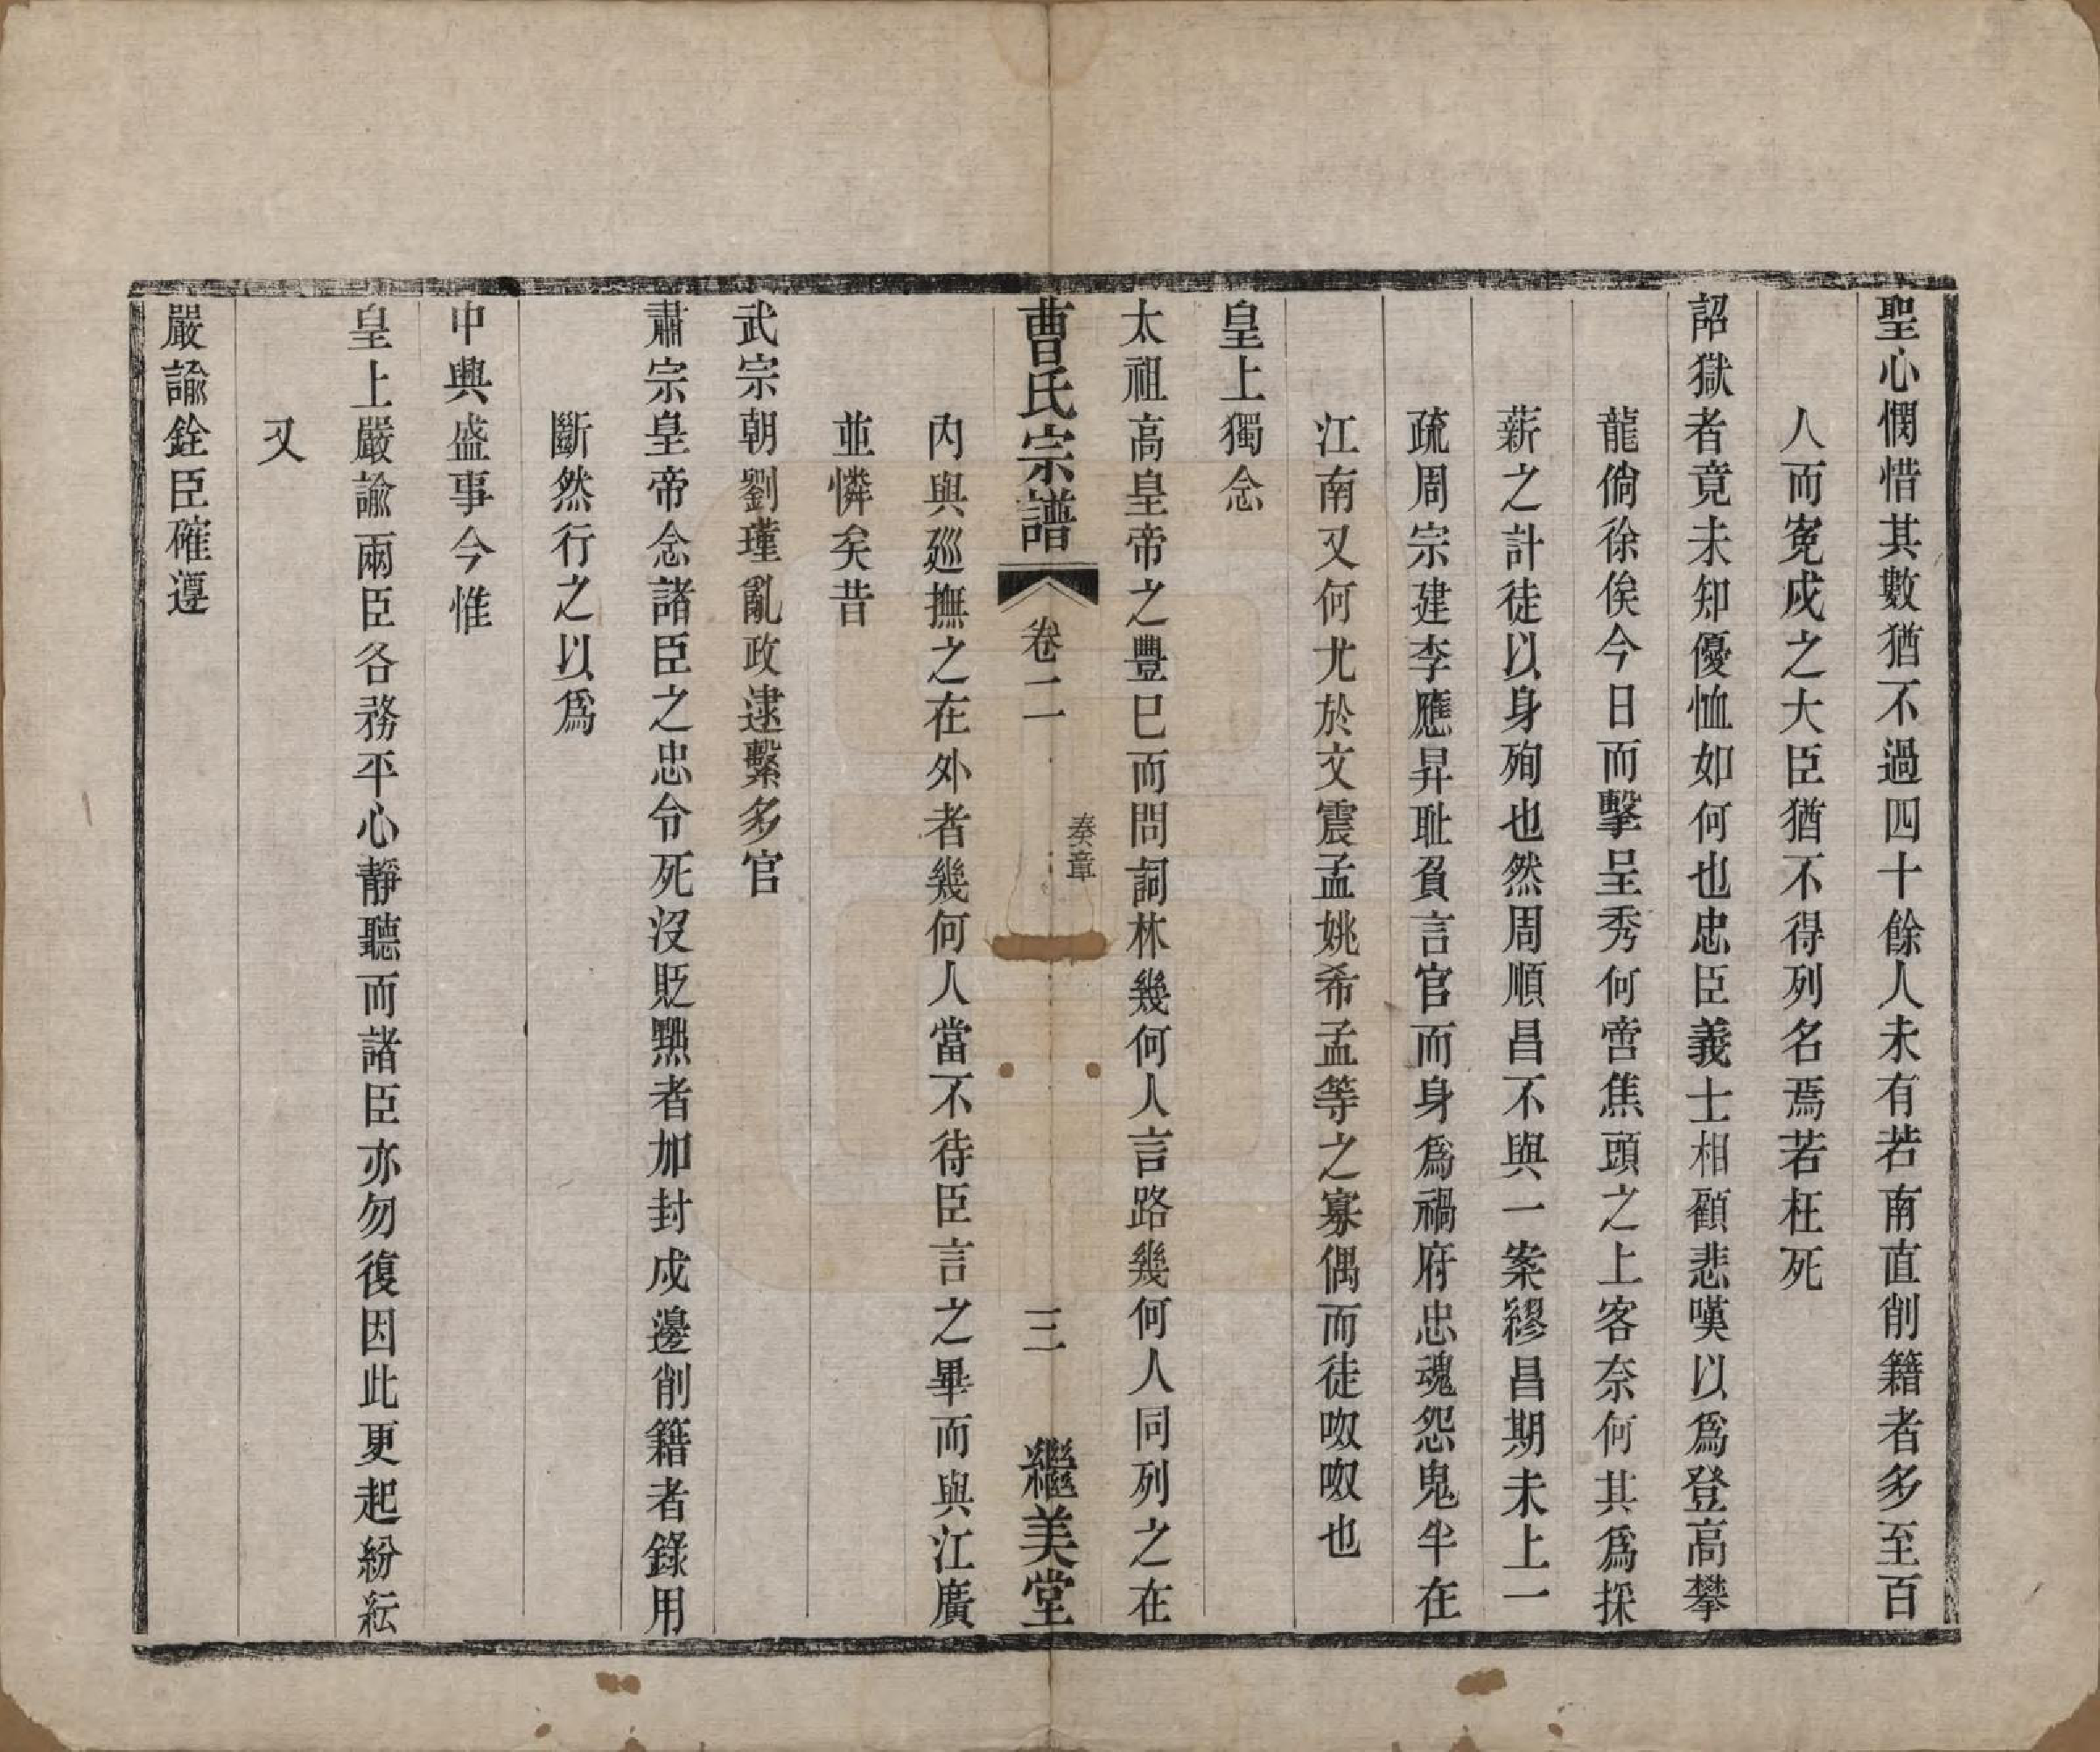 聖心憫惜其數猶不過四十餘人未有若南直削籍者多至百
人而寃戍之大臣猶不得列名焉若枉死
詔獄者竟未知優恤如何也忠臣義士相顧悲嘆以爲登高攀
龍倘徐俟今日而擊呈秀何啻焦頭之上客奈何其爲採
薪之計徒以身殉也然周順昌不與一案繆昌期未上一
疏周宗建李應昇耻負言官而身爲禍府忠魂怨鬼半在
江南又何尤於文震孟姚希孟等之寡偶而徒呶呶也
皇上獨念
太祖高皇帝之豐巳而問詞林幾何人言路幾何人同列之在
曹氏宗譜
卷二
奏章
三
繼美堂
內與廵撫之在外者幾何人當不待臣言之畢而與江廣
並憐矣昔
武宗朝劉瑾亂政逮繫多官
肅宗皇帝念諸臣之忠令死沒貶黜者加封戍邊削籍者錄用
斷然行之以爲
中興盛事今惟
皇上嚴諭兩臣各務平心靜聽而諸臣亦勿復因此更起紛紜
又
嚴諭銓臣確遵